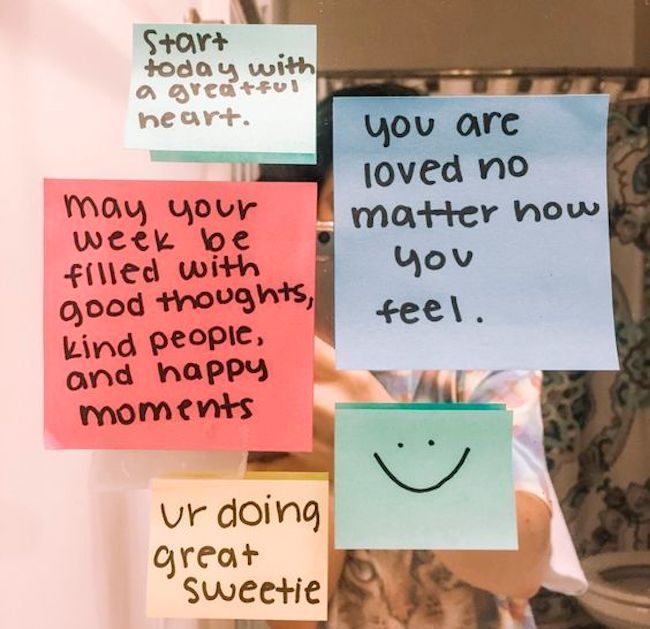 Start
today with
a greatful
heart.
you are
loved no
matter how
you
feel.
may your
week be
filled with
good thoughts,
kind people,
and happy
moments
ur doing
great
sweetie